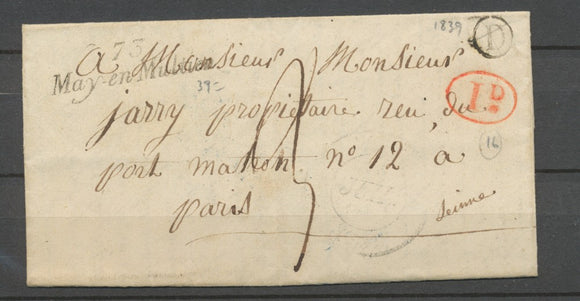 1839
D
73
May-en-Multien
39=
A Monsieur Monsieur
jarry propietaire reu du
port mahon n° 12 à
paris
Seinne
1 D
16
3